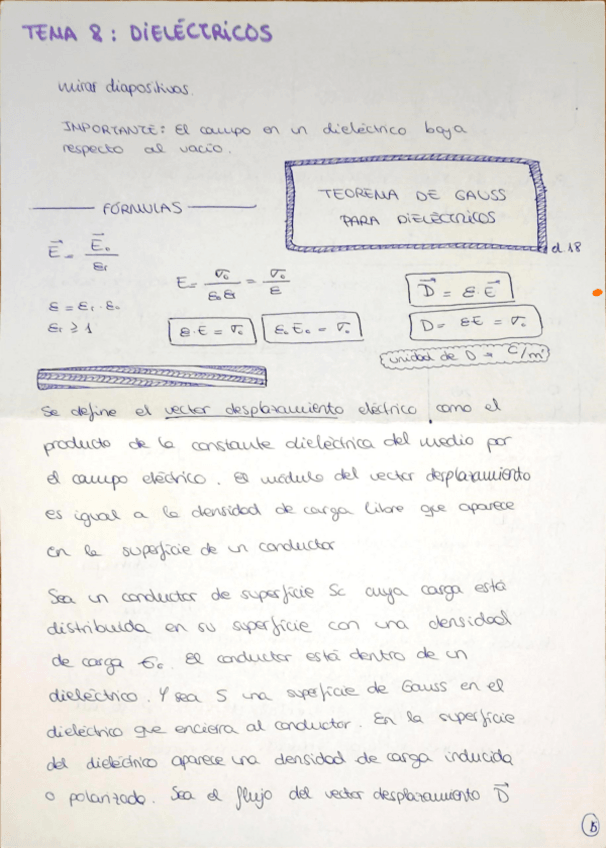 TEMA 8: DIELÉCTRICOS
mirar diapositivas.
IMPORTANTE: El campo en un dieléctrico baja
respecto al vacío.
TEOREMA DE GAUSS
PARA DIELÉCTRICOS
d 18
FÓRMULAS
E⃗ = E⃗₀ / εr
E = σ₀ / ε₀εr = σ₀ / ε
D⃗ = ε · E⃗
ε = εr · ε₀
εr ≥ 1
ε · E = σ₀
ε₀ E₀ = σ₀
D = εE = σ₀
unidad de D → C/m²
Se define el vector desplazamiento eléctrico como el
producto de la constante dieléctrica del medio por
el campo eléctrico. El módulo del vector desplazamiento
es igual a la densidad de carga libre que aparece
en la superficie de un conductor
Sea un conductor de superficie Sc cuya carga está
distribuida en su superficie con una densidad
de carga σ₀. El conductor está dentro de un
dieléctrico. Y sea S una superficie de Gauss en el
dieléctrico que encierra al conductor. En la superficie
del dieléctrico aparece una densidad de carga inducida
o polarizada. Sea el flujo del vector desplazamiento D⃗